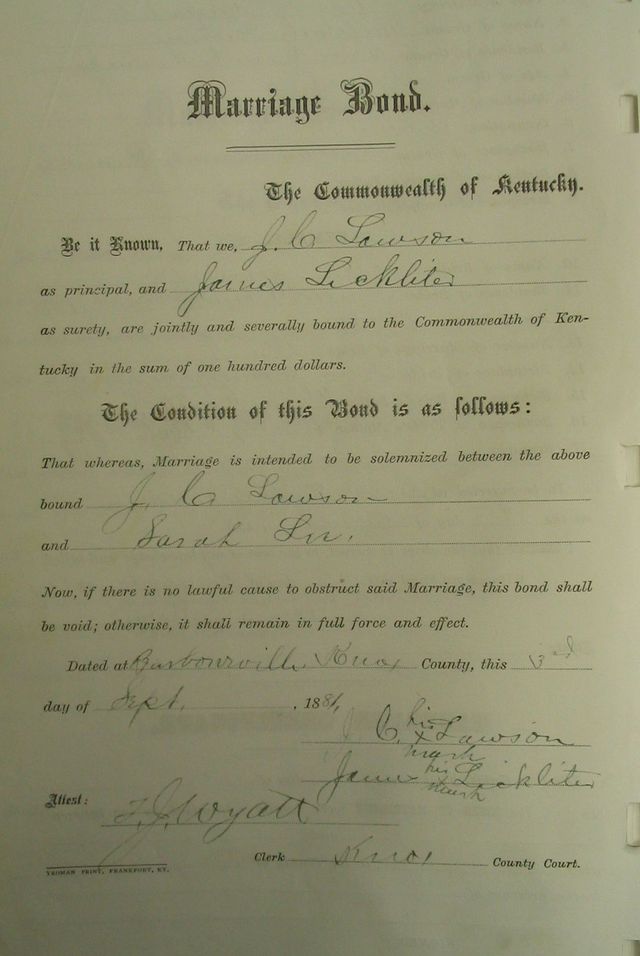 Marriage Bond.
The Commonwealth of Kentucky.
Be it Known, That we, J. C Lawson
as principal, and James Lickliter
as surety, are jointly and severally bound to the Commonwealth of Ken-
tucky in the sum of one hundred dollars.
The Condition of this Bond is as follows:
That whereas, Marriage is intended to be solemnized between the above
bound J. C Lawson
and Sarah
Now, if there is no lawful cause to obstruct said Marriage, this bond shall
be void; otherwise, it shall remain in full force and effect.
Dated at Barbourville Knox County, this 3rd
day of Sept. , 188
his
J C. x Lawson
mark
his
James x Lickliter
mark
Attest: Wyatt
Clerk Knox County Court.
YEOMAN PRINT, FRANKFORT, KY.